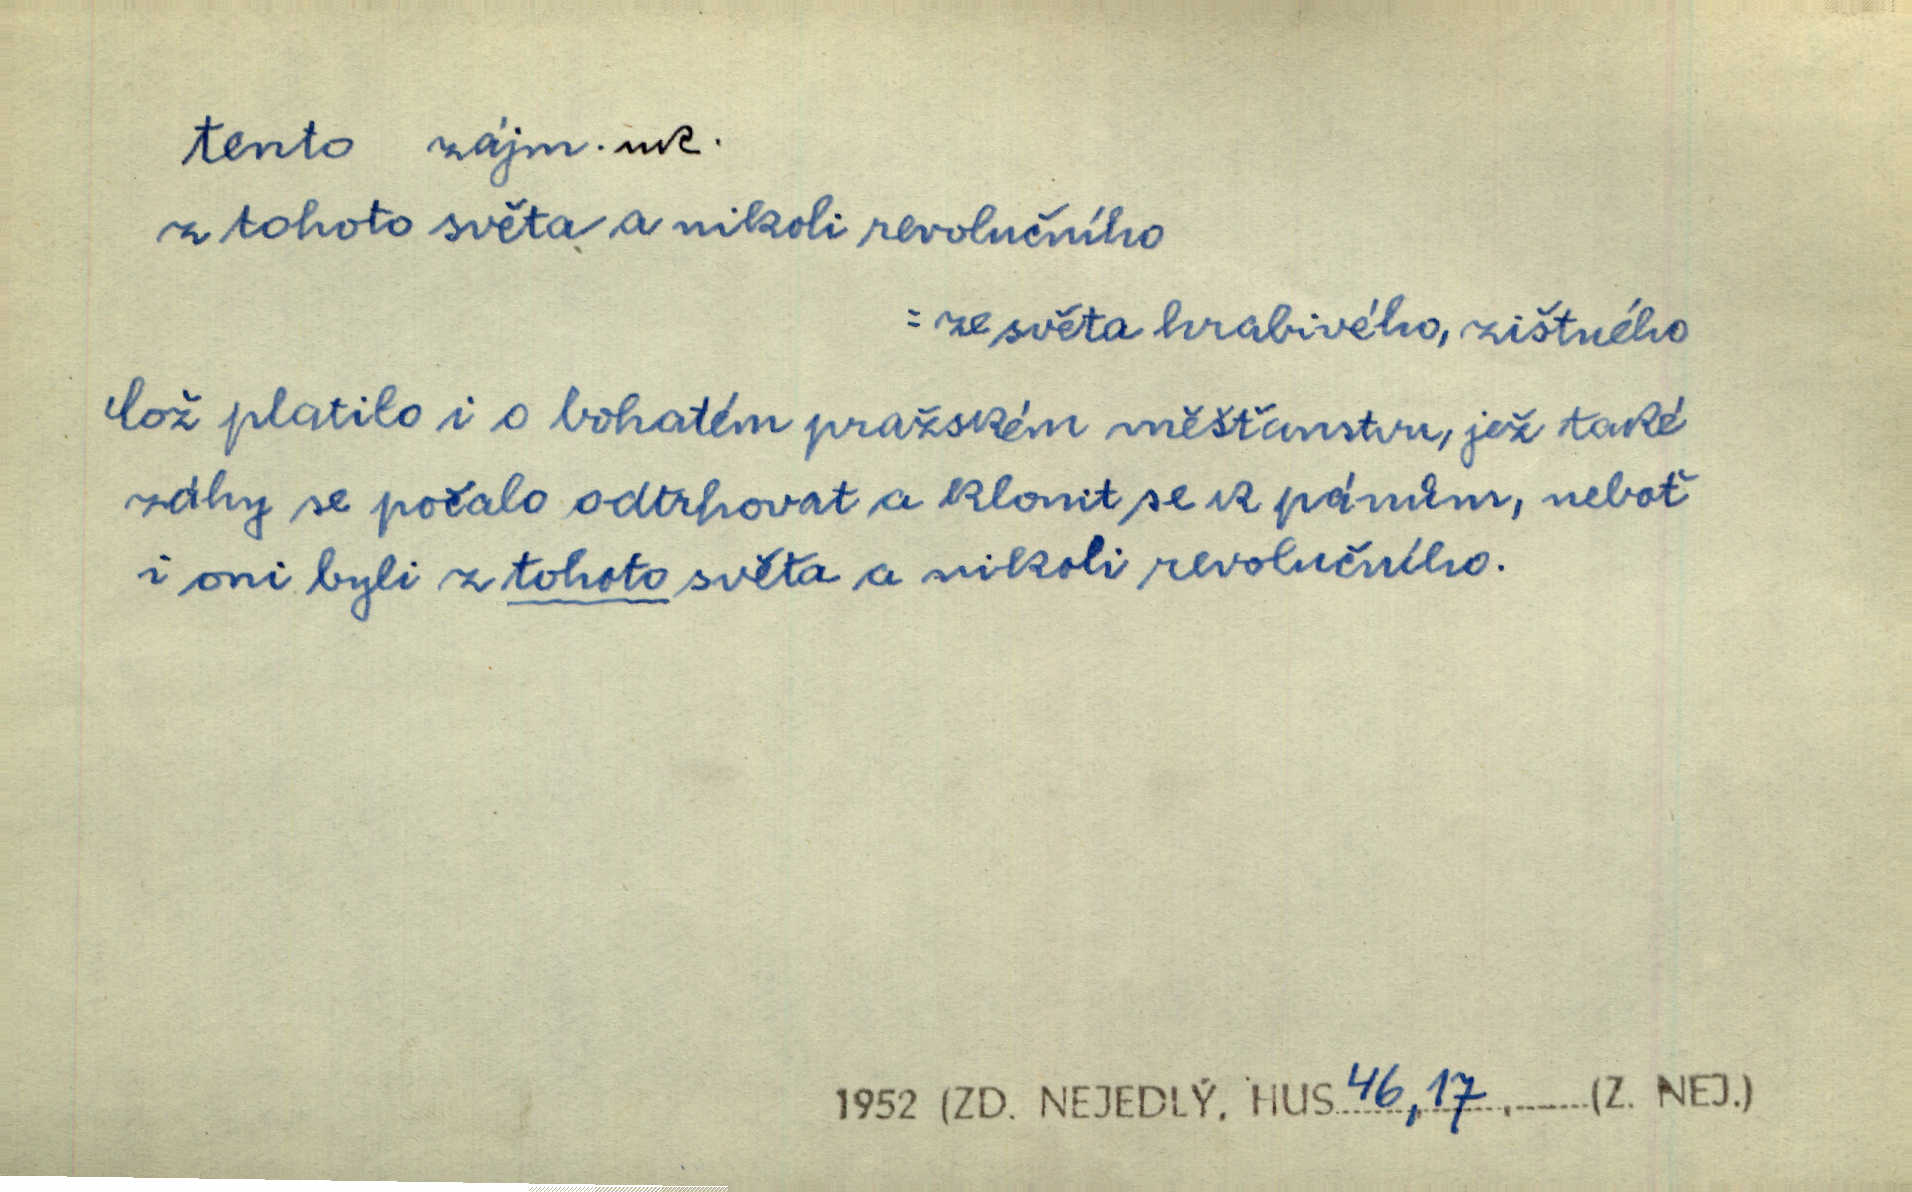 tento zájm. uk.
z tohoto světa a nikoli revolučního
= ze světa hrabivého, zištného
Což platilo i o bohatém pražském měšťanstvu, jež také
záhy se počalo odtrhovat a klonit se k pánům, neboť
i oni byli z tohoto světa a nikoli revolučního.
1952 (ZD. NEJEDLÝ, HUS 46, 17, (Z. NEJ.)